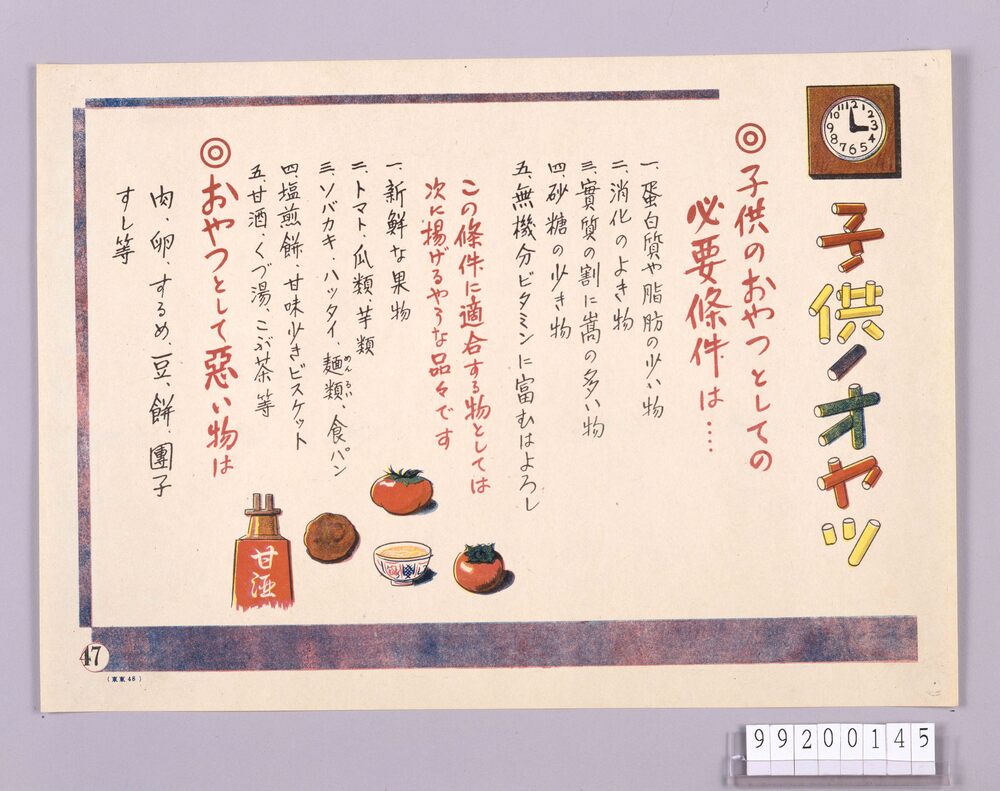 子供ノオヤツ
12
1
2
3
4
5
6
7
8
9
10
11
◎子供のおやつとしての
必要條件は‥‥
一、蛋白質や脂肪の少い物
二、消化のよき物
三、實質の割に嵩の多い物
四、砂糖の少き物
五、無機分ビタミンに富むはよろし
この條件に適合する物としては
次に揚げるやうな品々です
一、新鮮な果物
二、トマト、瓜類、芋類
三、ソバカキ、ハッタイ、麺類、食パン
めんるい
四、塩煎餅、甘味少きビスケット
五、甘酒、くづ湯、こぶ茶等
◎おやつとして惡い物は
肉、卵、するめ、豆、餅、團子
すし等
甘酒
47
(東東48)
99200145